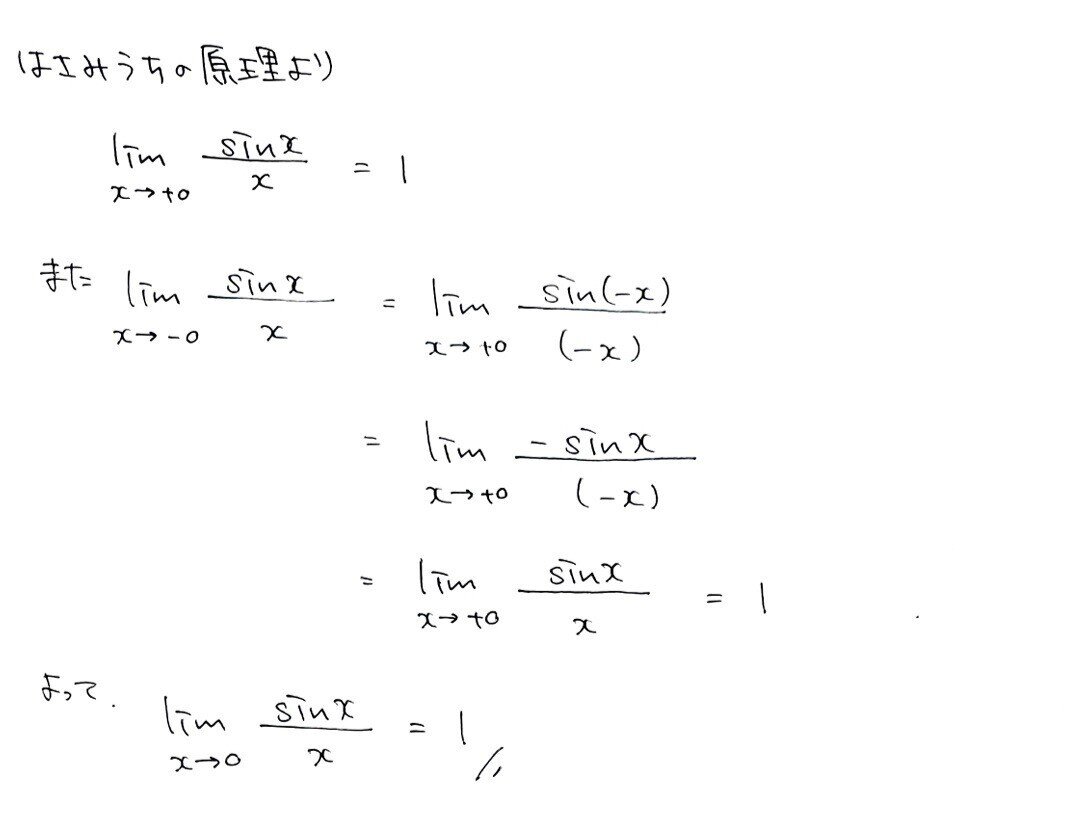 はさみうちの原理より
lim_{x→+0} sinx/x = 1
また lim_{x→-0} sinx/x = lim_{x→+0} sin(-x)/(-x)
= lim_{x→+0} -sinx/(-x)
= lim_{x→+0} sinx/x = 1
よって. lim_{x→0} sinx/x = 1 //